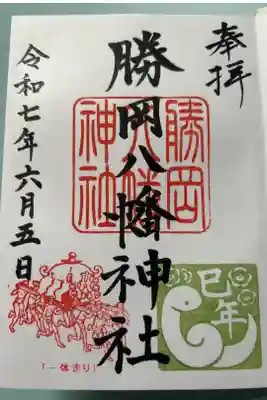 奉拝
勝岡八幡神社
令和七年六月五日
勝岡
八幡
神社
巳年
(一体走り)